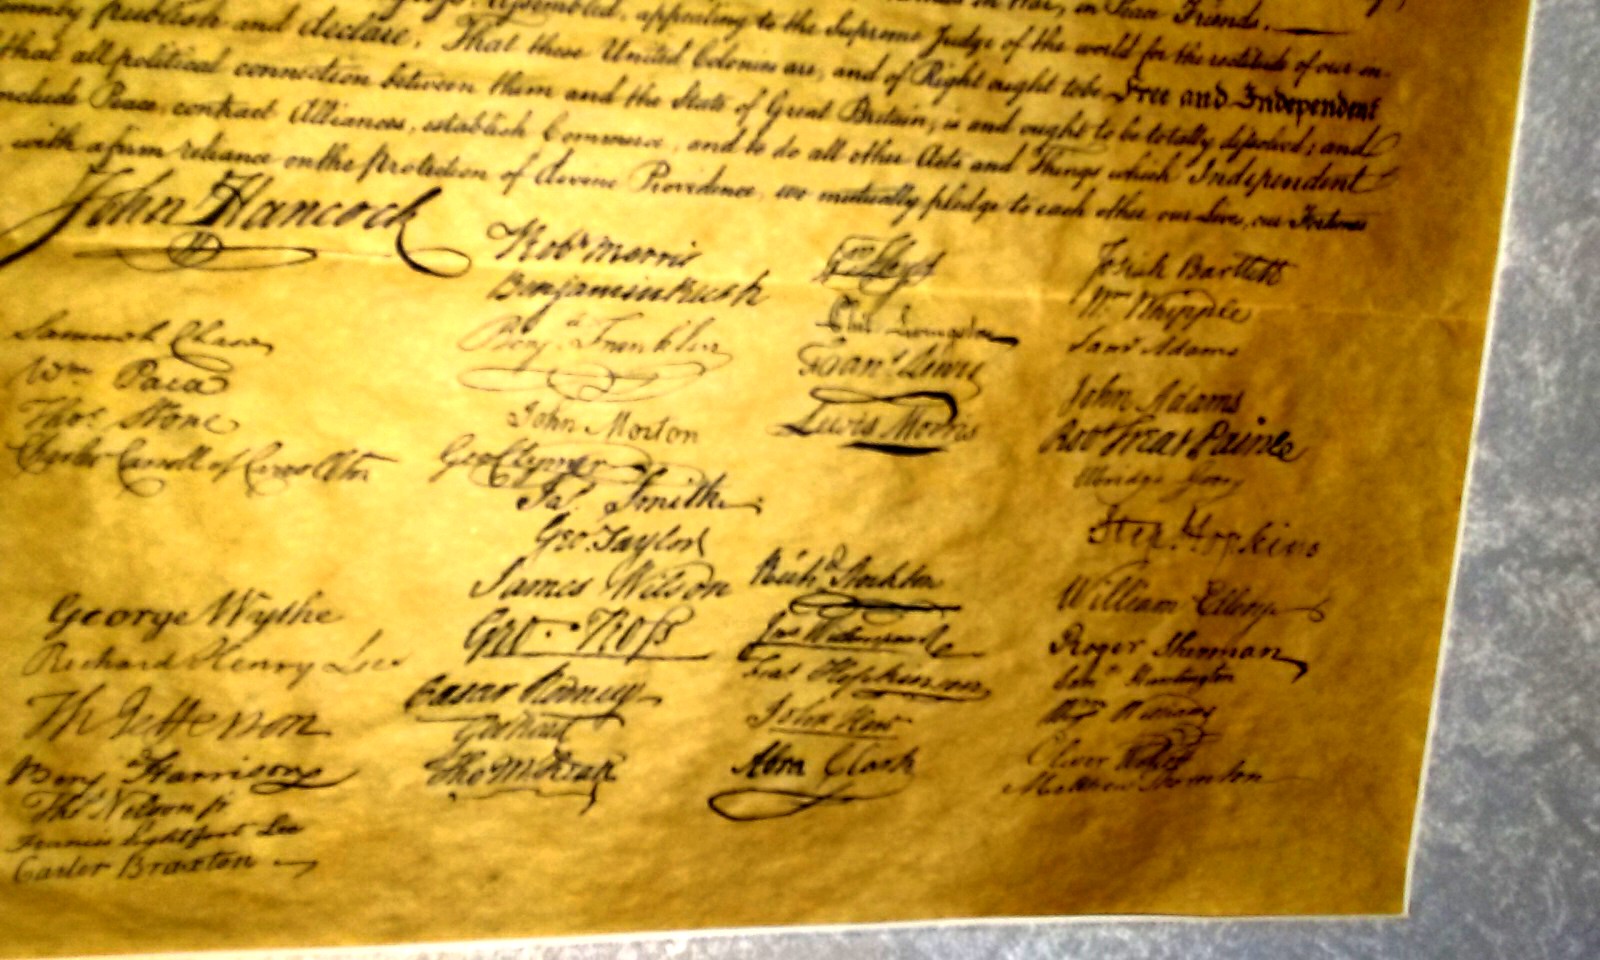 in War, in Peace Friends.
publish and declare, That these United Colonies are, and of Right ought to be Free and Independent
assembled, appealing to the Supreme Judge of the world for the rectitude of our in-
that all political connection between them and the State of Great Britain, is and ought to be totally dissolved; and
Peace, contract Alliances, establish Commerce, and to do all other Acts and Things which Independent
with a firm reliance on the Protection of divine Providence, we mutually pledge to each other our Lives, our Fortunes
John Hancock
Samuel Chase
Wm Paca
Thos Stone
Charles Carroll of Carrollton
George Wythe
Richard Henry Lee
Th Jefferson
Benj Harrison
Thos Nelson jr
Francis Lightfoot Lee
Carter Braxton
Robt Morris
Benjamin Rush
Benja Franklin
John Morton
Geo Clymer
Jas Smith
Geo. Taylor
James Wilson
Geo. Ross
Caesar Rodney
Geo Read
Tho M:Kean
Wm Floyd
Phil. Livingston
Frans Lewis
Lewis Morris
Richd Stockton
Jno Witherspoon
Fras Hopkinson
John Hart
Abra Clark
Josiah Bartlett
Wm Whipple
Saml Adams
John Adams
Robt Treat Paine
Elbridge Gerry
Step. Hopkins
William Ellery
Roger Sherman
Saml Huntington
Wm Williams
Oliver Wolcott
Matthew Thornton